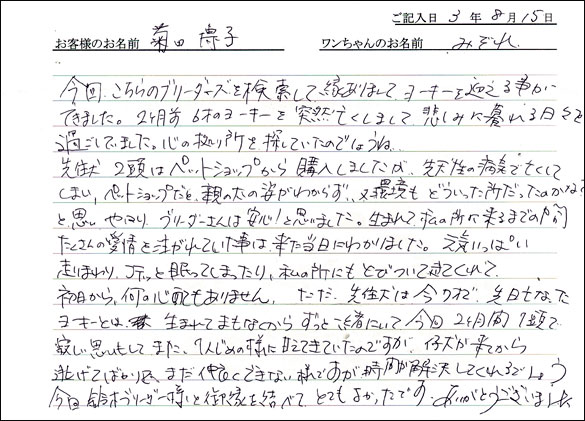 ご記入日 3年 8月 15日
お客様のお名前 菊田 子 ワンちゃんのお名前 みぞれ
今回、こちらのブリーダーズを検索して縁ありましてヨーキーを迎える事が
できました。2ヶ月前 6才のヨーキーを突然亡くしまして 悲しみに暮れる日々を
過ごしていました。心の拠り所を探していたのでしょうね。
先住犬 2頭はペットショップから購入しましたが、先天性の病気で亡くして
しまい、ペットショップだと、親の犬の姿がわからず、又環境もどういった所だったのかな?
と思い やはり ブリーダーさんは安心!と思いました。生まれて私の所に来るまでの間
たくさんの愛情を注がれていた事は 来た当日にわかりました。元気いっぱい
走りまわり、コテッと眠ってしまったり、私の所にもとびついて来てくれて
初日から、何の心配もありません。ただ、先住犬は今7才で、先日亡くなった
ヨーキーとは 生まれてまもなくから ずっと一緒にいて 今回 2ヶ月間 1頭で
寂しい思いもして また、1人じめの様に甘えてきていたのですが、仔犬が来てから
逃げてばかりで、まだ仲良くできない様ですが 時間が解決してくれるでしょう
今回 鈴木ブリーダー様と御縁を結べて とてもよかったです。ありがとうございました